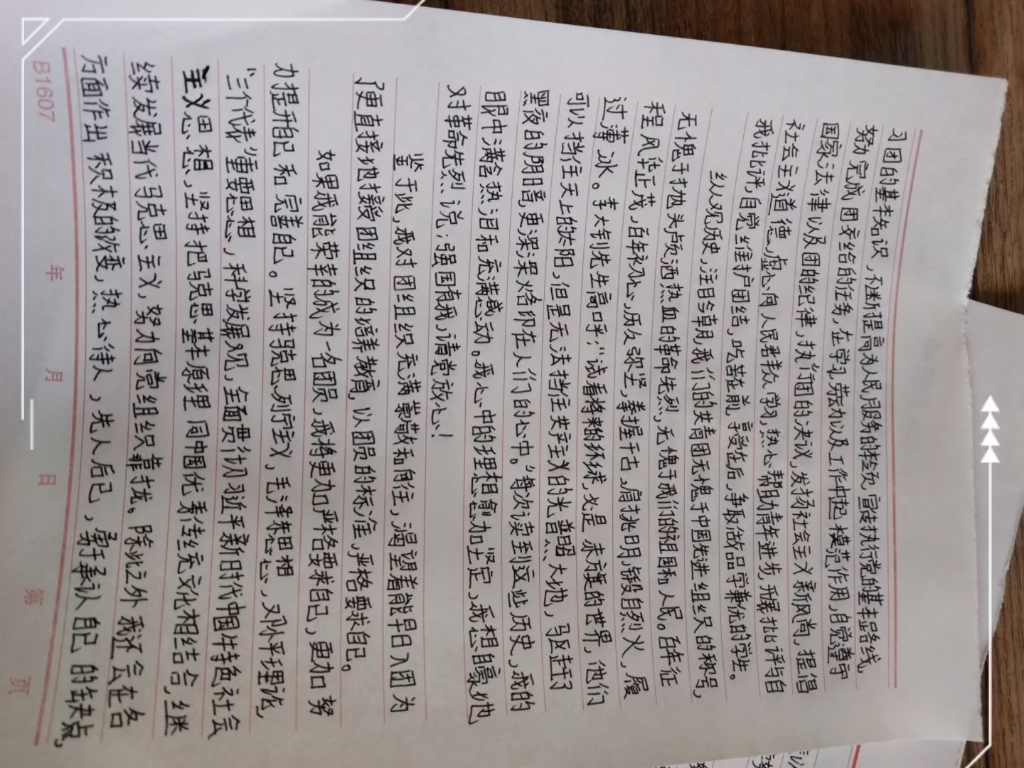 习团的基本知识，不断提高为人民服务的档次，宣传执行党的基本路线，
努力完成团交给的任务，在学习劳动以及工作中起模范作用，自觉遵守
国家法律以及团的纪律，执行团的决议，发扬社会主义新风尚，提倡
社会主义道德，虚心向人民群众学习，热心帮助青年进步，开展批评与自
我批评，自觉维护团结，吃苦在前，享受在后，争取做品学兼优的学生。
纵观历史，注目今朝，我们的共青团无愧于中国先进组织的称号，
无愧于抛头颅洒热血的革命先烈，无愧于我们的祖国和人民。百年征
程风华正茂，百年初心，历久弥坚，拳握千古，肩挑日明，锻自烈火，履
过薄冰。李大钊先生高呼："试看将来的环球，必是赤旗的世界，他们
可以挡住天上的太阳，但是无法挡住共产主义的光普照大地，马匹赶了
黑夜的阴暗，更深深烙印在人们的心中。"每次读到这处历史，我的
眼中满含热泪和充满感动。我心中的理想愈加坚定，我想自豪地
对革命先烈说：强国有我，请党放心！
鉴于此，我对团组织充满崇敬和向往，渴望着能早日入团为
了更直接地接受团组织的培养教育，以团员的标准，严格要求自己。
如果我能荣幸的成为一名团员，我将更加严格要求自己，更加努
力提升自己和完善自己。坚持马克思列宁主义，毛泽东思想，邓小平理论，
"三个代表"重要思想，科学发展观，全面贯彻习近平新时代中国特色社会
主义思想，坚持把马克思基本原理同中国优秀传统文化相结合，继
续发展当代马克思主义，努力向党组织靠拢。除此之外我还会在各
方面作出积极的改变，热心待人，先人后己，勇于承认自己的缺点，
B1607 年 月 日 第 页